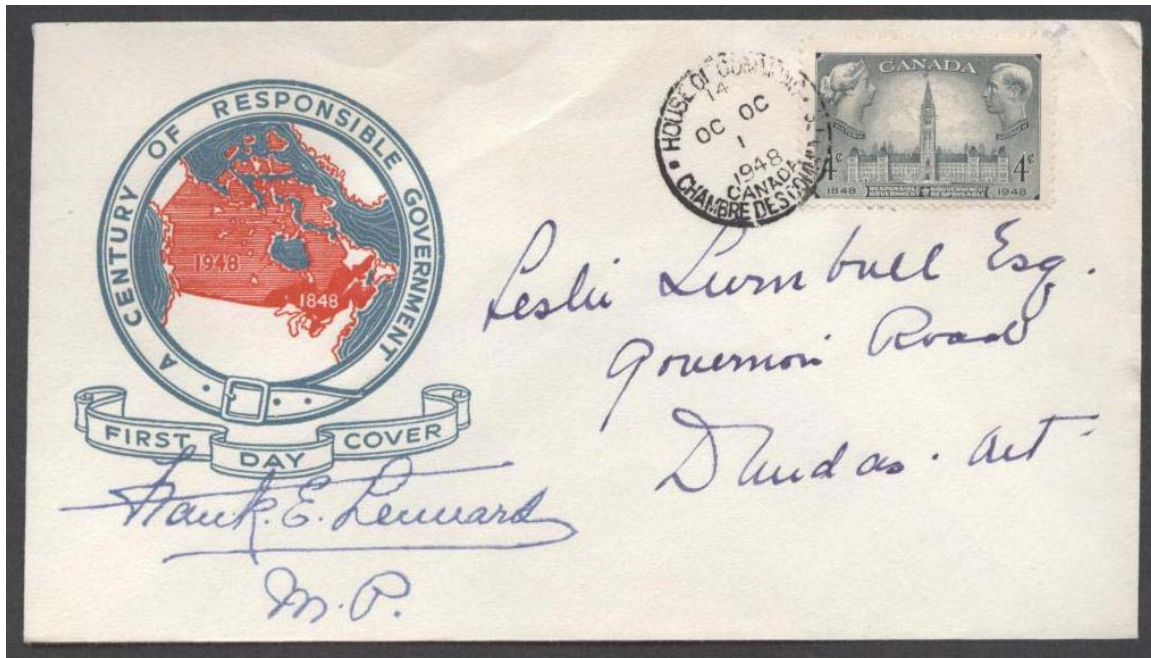 A CENTURY OF RESPONSIBLE GOVERNMENT
1948
1848
FIRST DAY COVER
Frank. E. Lennard
M.P.
HOUSE OF COMMONS
14
OC OC
1
1948
CANADA
CHAMBRE DES COMMUNES
CANADA
VICTORIA
GEORGE VI
4¢ 4¢
1848 RESPONSIBLE GOUVERNEMENT 1948
GOVERNMENT RESPONSABLE
Leslie Turnbull Esq.
Governor's Road
Dundas. Ont